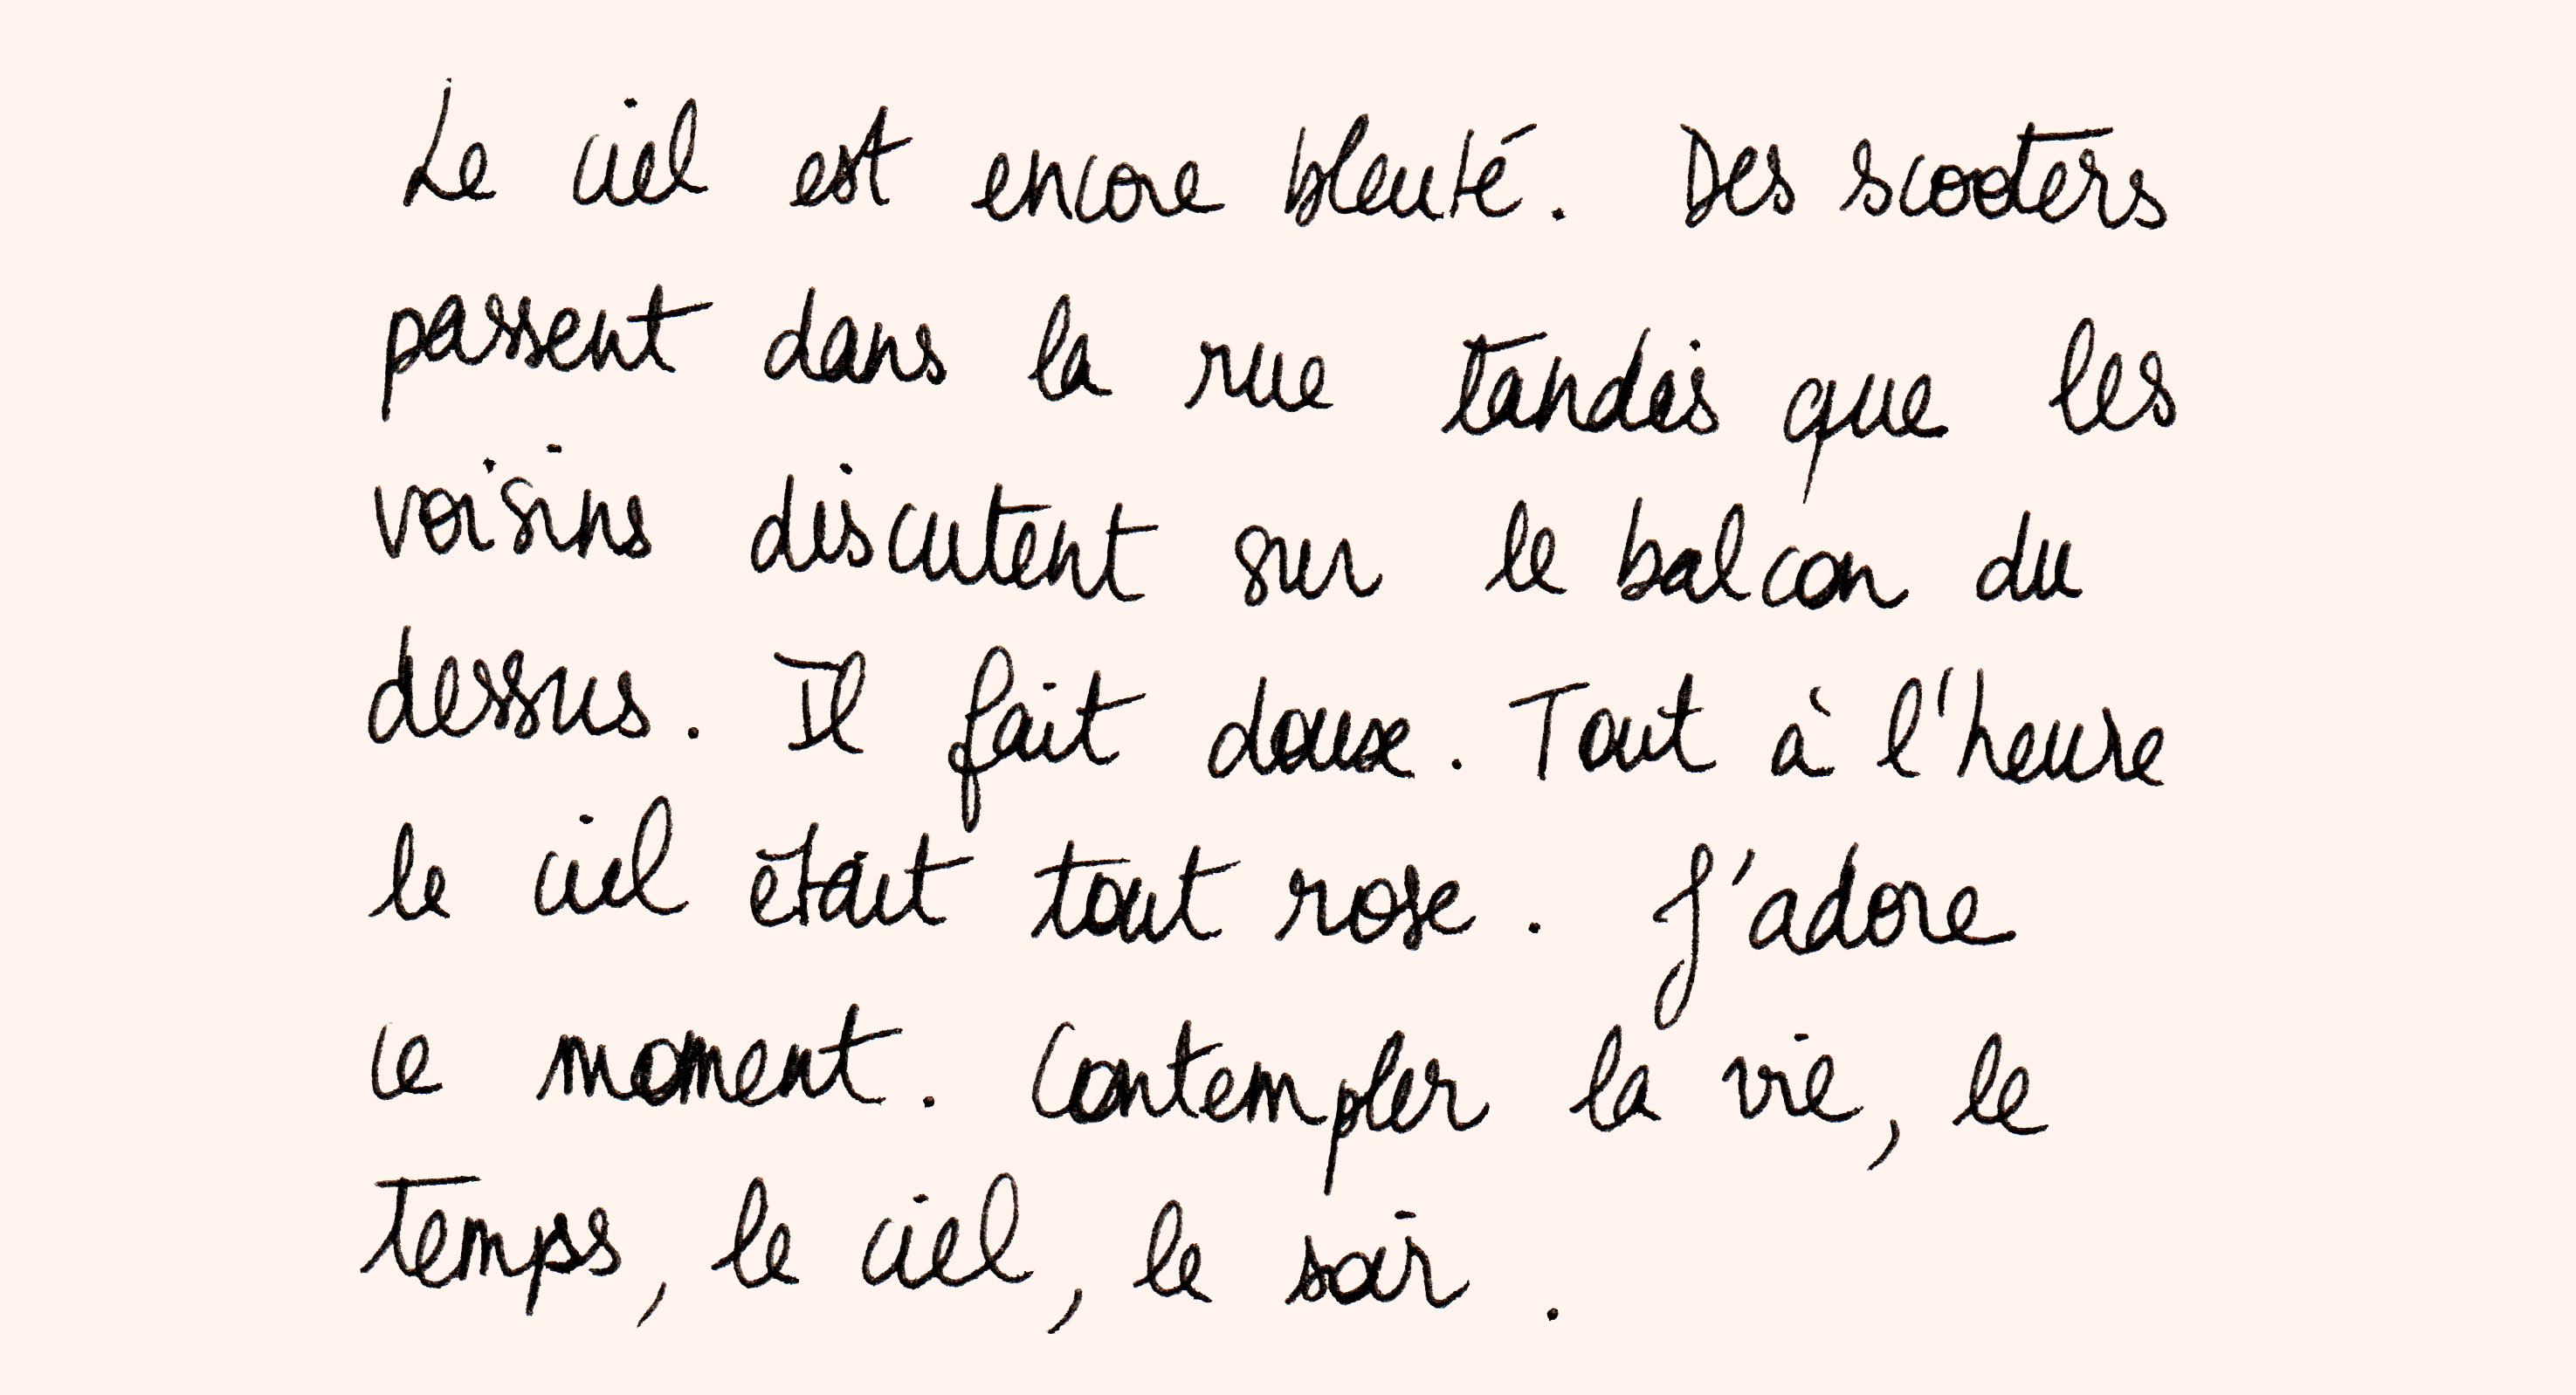 Le ciel est encore bleuté. Des scooters
passent dans la rue tandis que les
voisins discutent sur le balcon du
dessus. Il fait doux. Tout à l'heure
le ciel était tout rose. J'adore
ce moment. Contempler la vie, le
temps, le ciel, le soir.